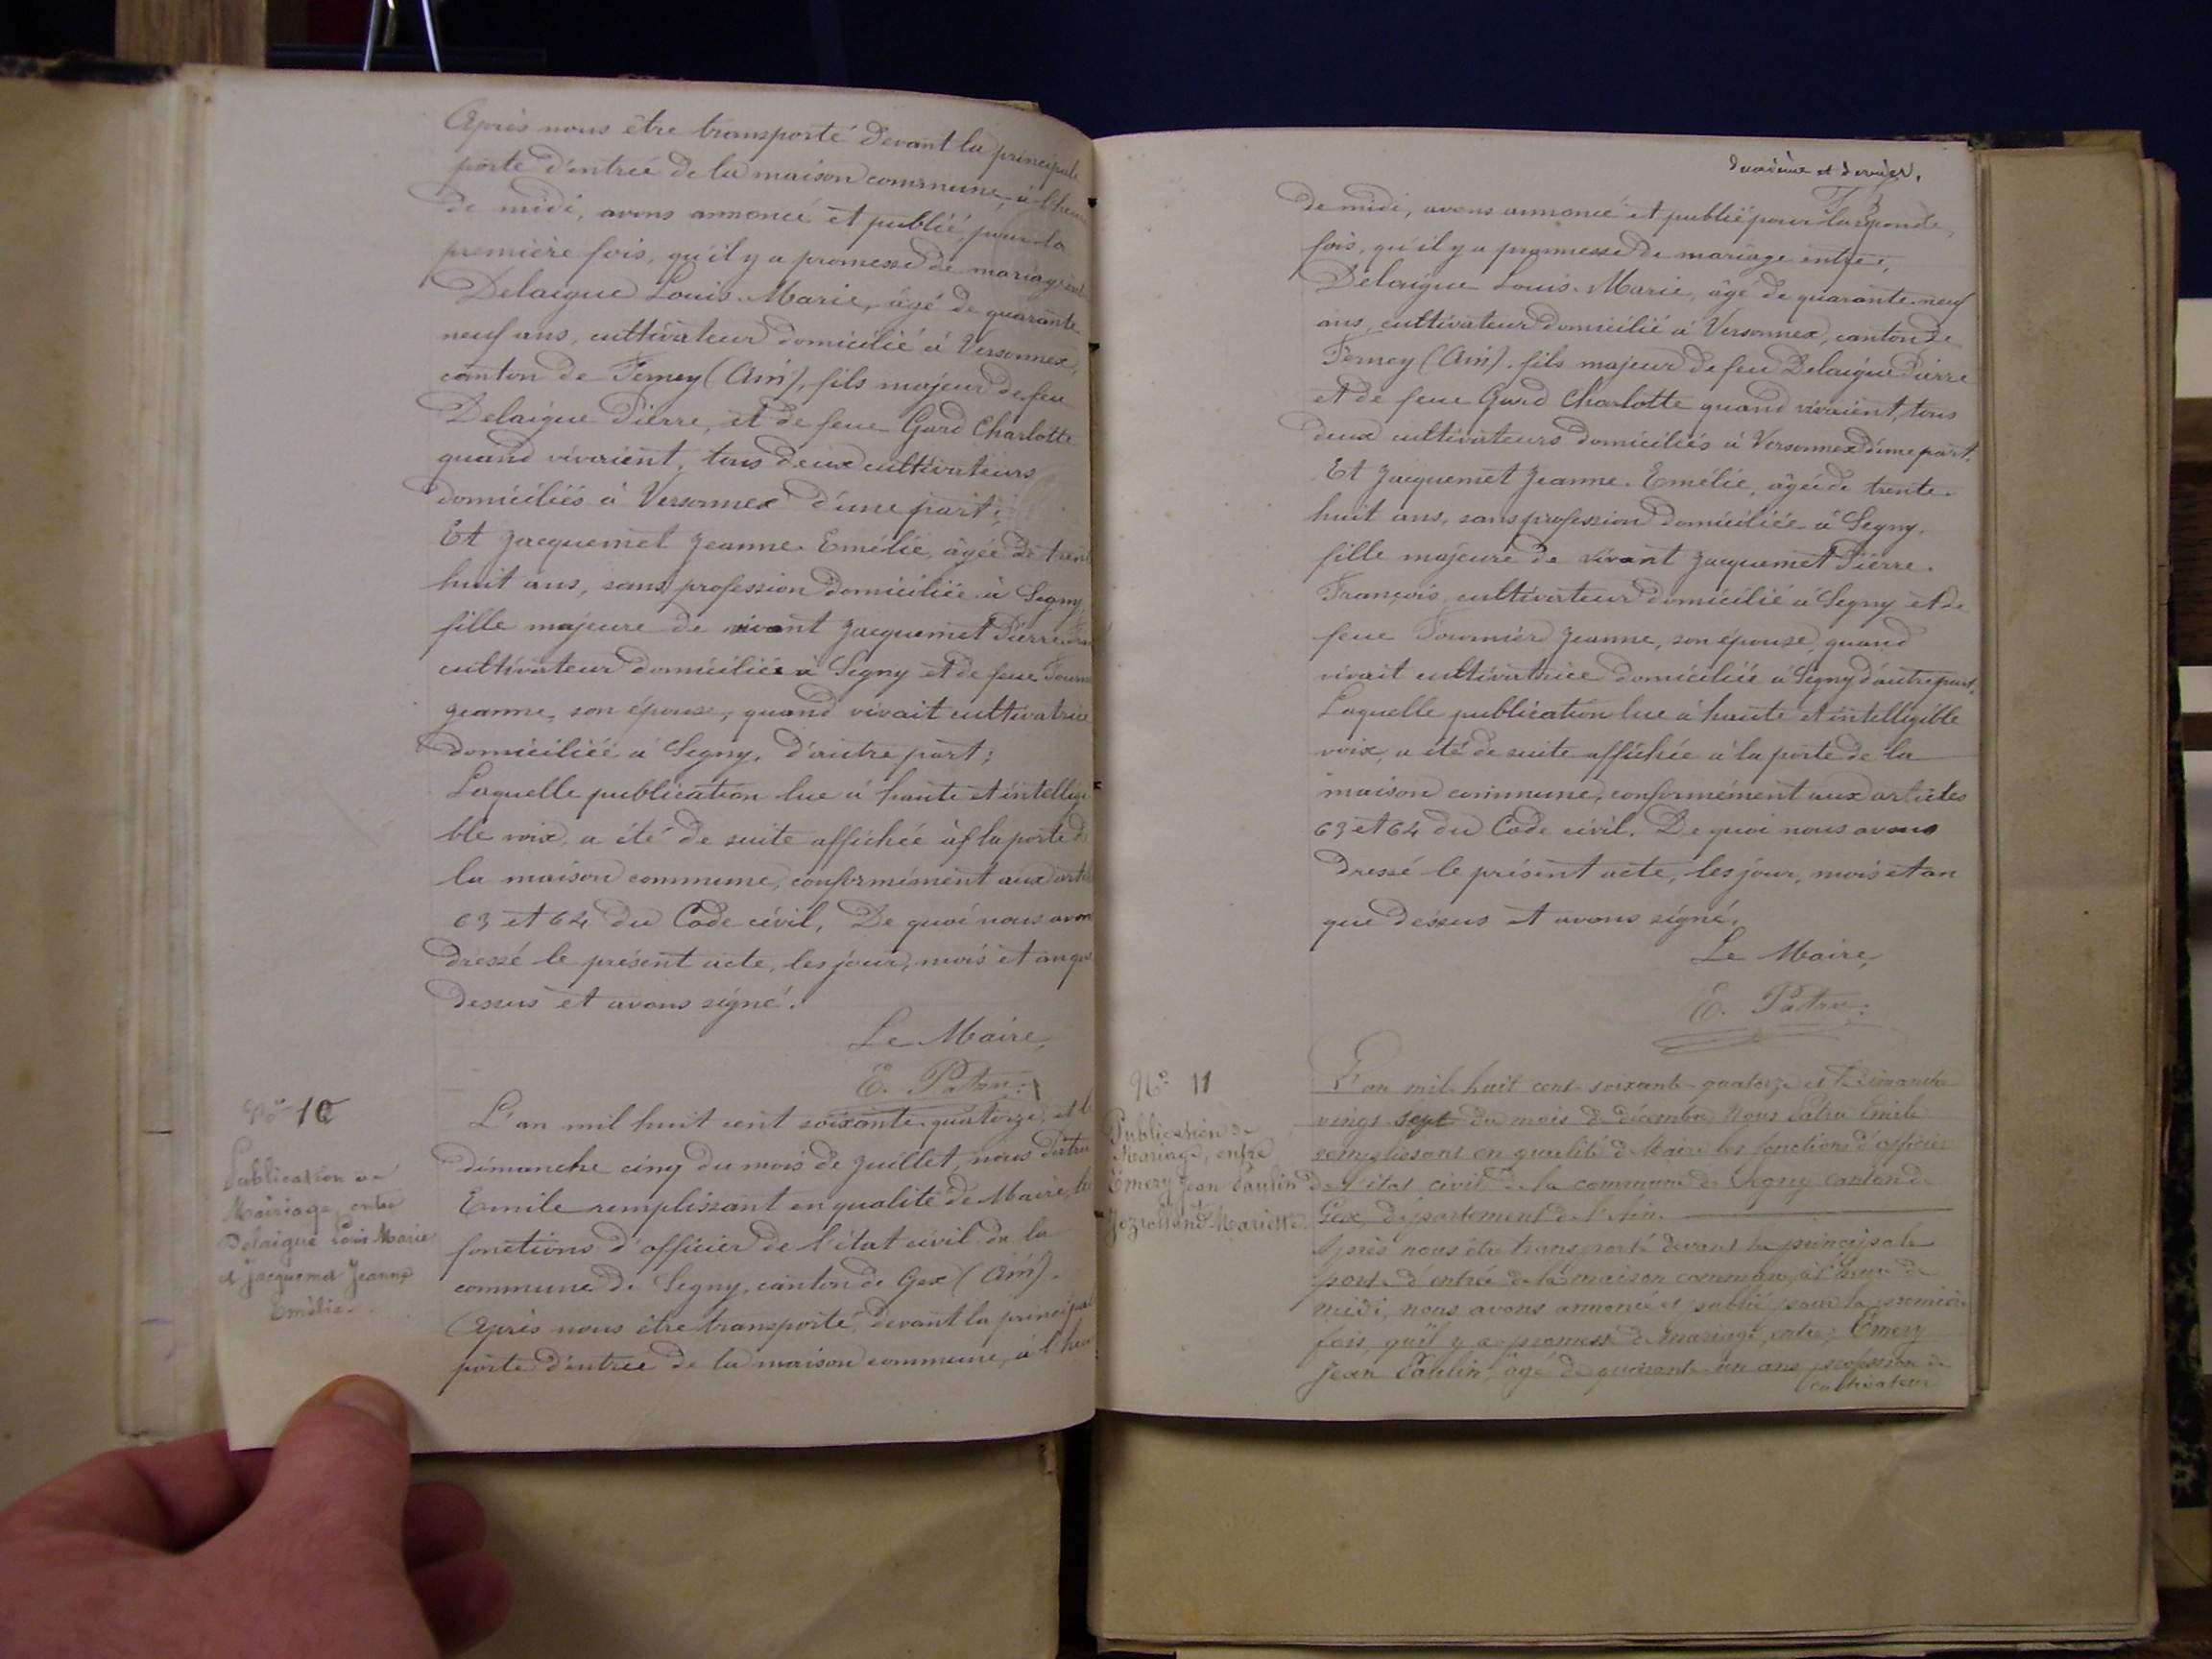 Après nous être transporté devant la principale
porte d'entrée de la maison commune, à l'heure
de midi, avons annoncé et publié, pour la
première fois, qu'il y a promesse de mariage
Delaigue Louis-Marie, âgé de quarante
neuf ans, cultivateur domicilié à Versonnex,
canton de Ferney (Ain), fils majeur de feu
Delaigue Pierre, et de feue Gard Charlotte
quand vivaient, tous deux cultivateurs
domiciliés à Versonnex d'une part;
Et Jacquemet Jeanne Emélie, âgée de
huit ans, sans profession domiciliée à Segny,
fille majeure de vivant Jacquemet Pierre
cultivateur domicilié à Segny et de feue
Jeanne, son épouse, quand vivait cultivatrice
domiciliée à Segny, d'autre part;
Laquelle publication lue à haute et intelligi
ble voix, a été de suite affichée à la porte de
la maison commune, conformément aux
63 et 64 du Code civil. De quoi nous avons
dressé le présent acte, les jour, mois et an que
dessus et avons signé.
Le Maire,
E. Patru
No 10
Publication de
Mariage, entre
Delaigue Louis Marie
et Jacquemet Jeanne
Emélie.
L'an mil huit cent soixante-quatorze, et le
dimanche cinq du mois de Juillet, nous Patru
Emile remplissant en qualité de Maire, les
fonctions d'officier de l'état civil de la
commune de Segny, canton de Gex (Ain).
Après nous être transporté, devant la principale
porte d'entrée de la maison commune, à l'heure
deuxième et dernier.
de midi, avons annoncé et publié pour la seconde
fois, qu'il y a promesse de mariage entre,
Delaigue Louis-Marie, âgé de quarante-neuf
ans, cultivateur domicilié à Versonnex, canton de
Ferney (Ain). fils majeur de feu Delaigue Pierre
et de feue Gard Charlotte quand vivaient, tous
deux cultivateurs domiciliés à Versonnex d'une part.
Et Jacquemet Jeanne-Emélie, âgée de trente-
huit ans, sans profession domiciliée à Segny.
fille majeure de vivant Jacquemet Pierre.
François, cultivateur domicilié à Segny et de
feue Fournier Jeanne, son épouse, quand
vivait cultivatrice domiciliée à Segny d'autre part.
Laquelle publication lue à haute et intelligible
voix, a été de suite affichée à la porte de la
maison commune, conformément aux articles
63 et 64 du Code civil. De quoi nous avons
dressé le présent acte, les jour, mois et an
que dessus et avons signé.
Le Maire,
E. Patru
No 11
Publication de
Mariage, entre
Emery Jean Paulin
Mariette
L'an mil huit cent soixante-quatorze et le dimanche
vingt sept du mois de décembre, nous Patru Emile
remplissant en qualité de Maire les fonctions d'officier
de l'état civil de la commune de Segny canton de
Gex, département de l'Ain.
Après nous être transporté devant la principale
porte d'entrée de la maison commune, à l'heure de
midi, nous avons annoncé et publié pour la première
fois, qu'il y a promesse de mariage, entre; Emery
Jean Paulin, âgé de quarante-un ans, profession de
cultivateur